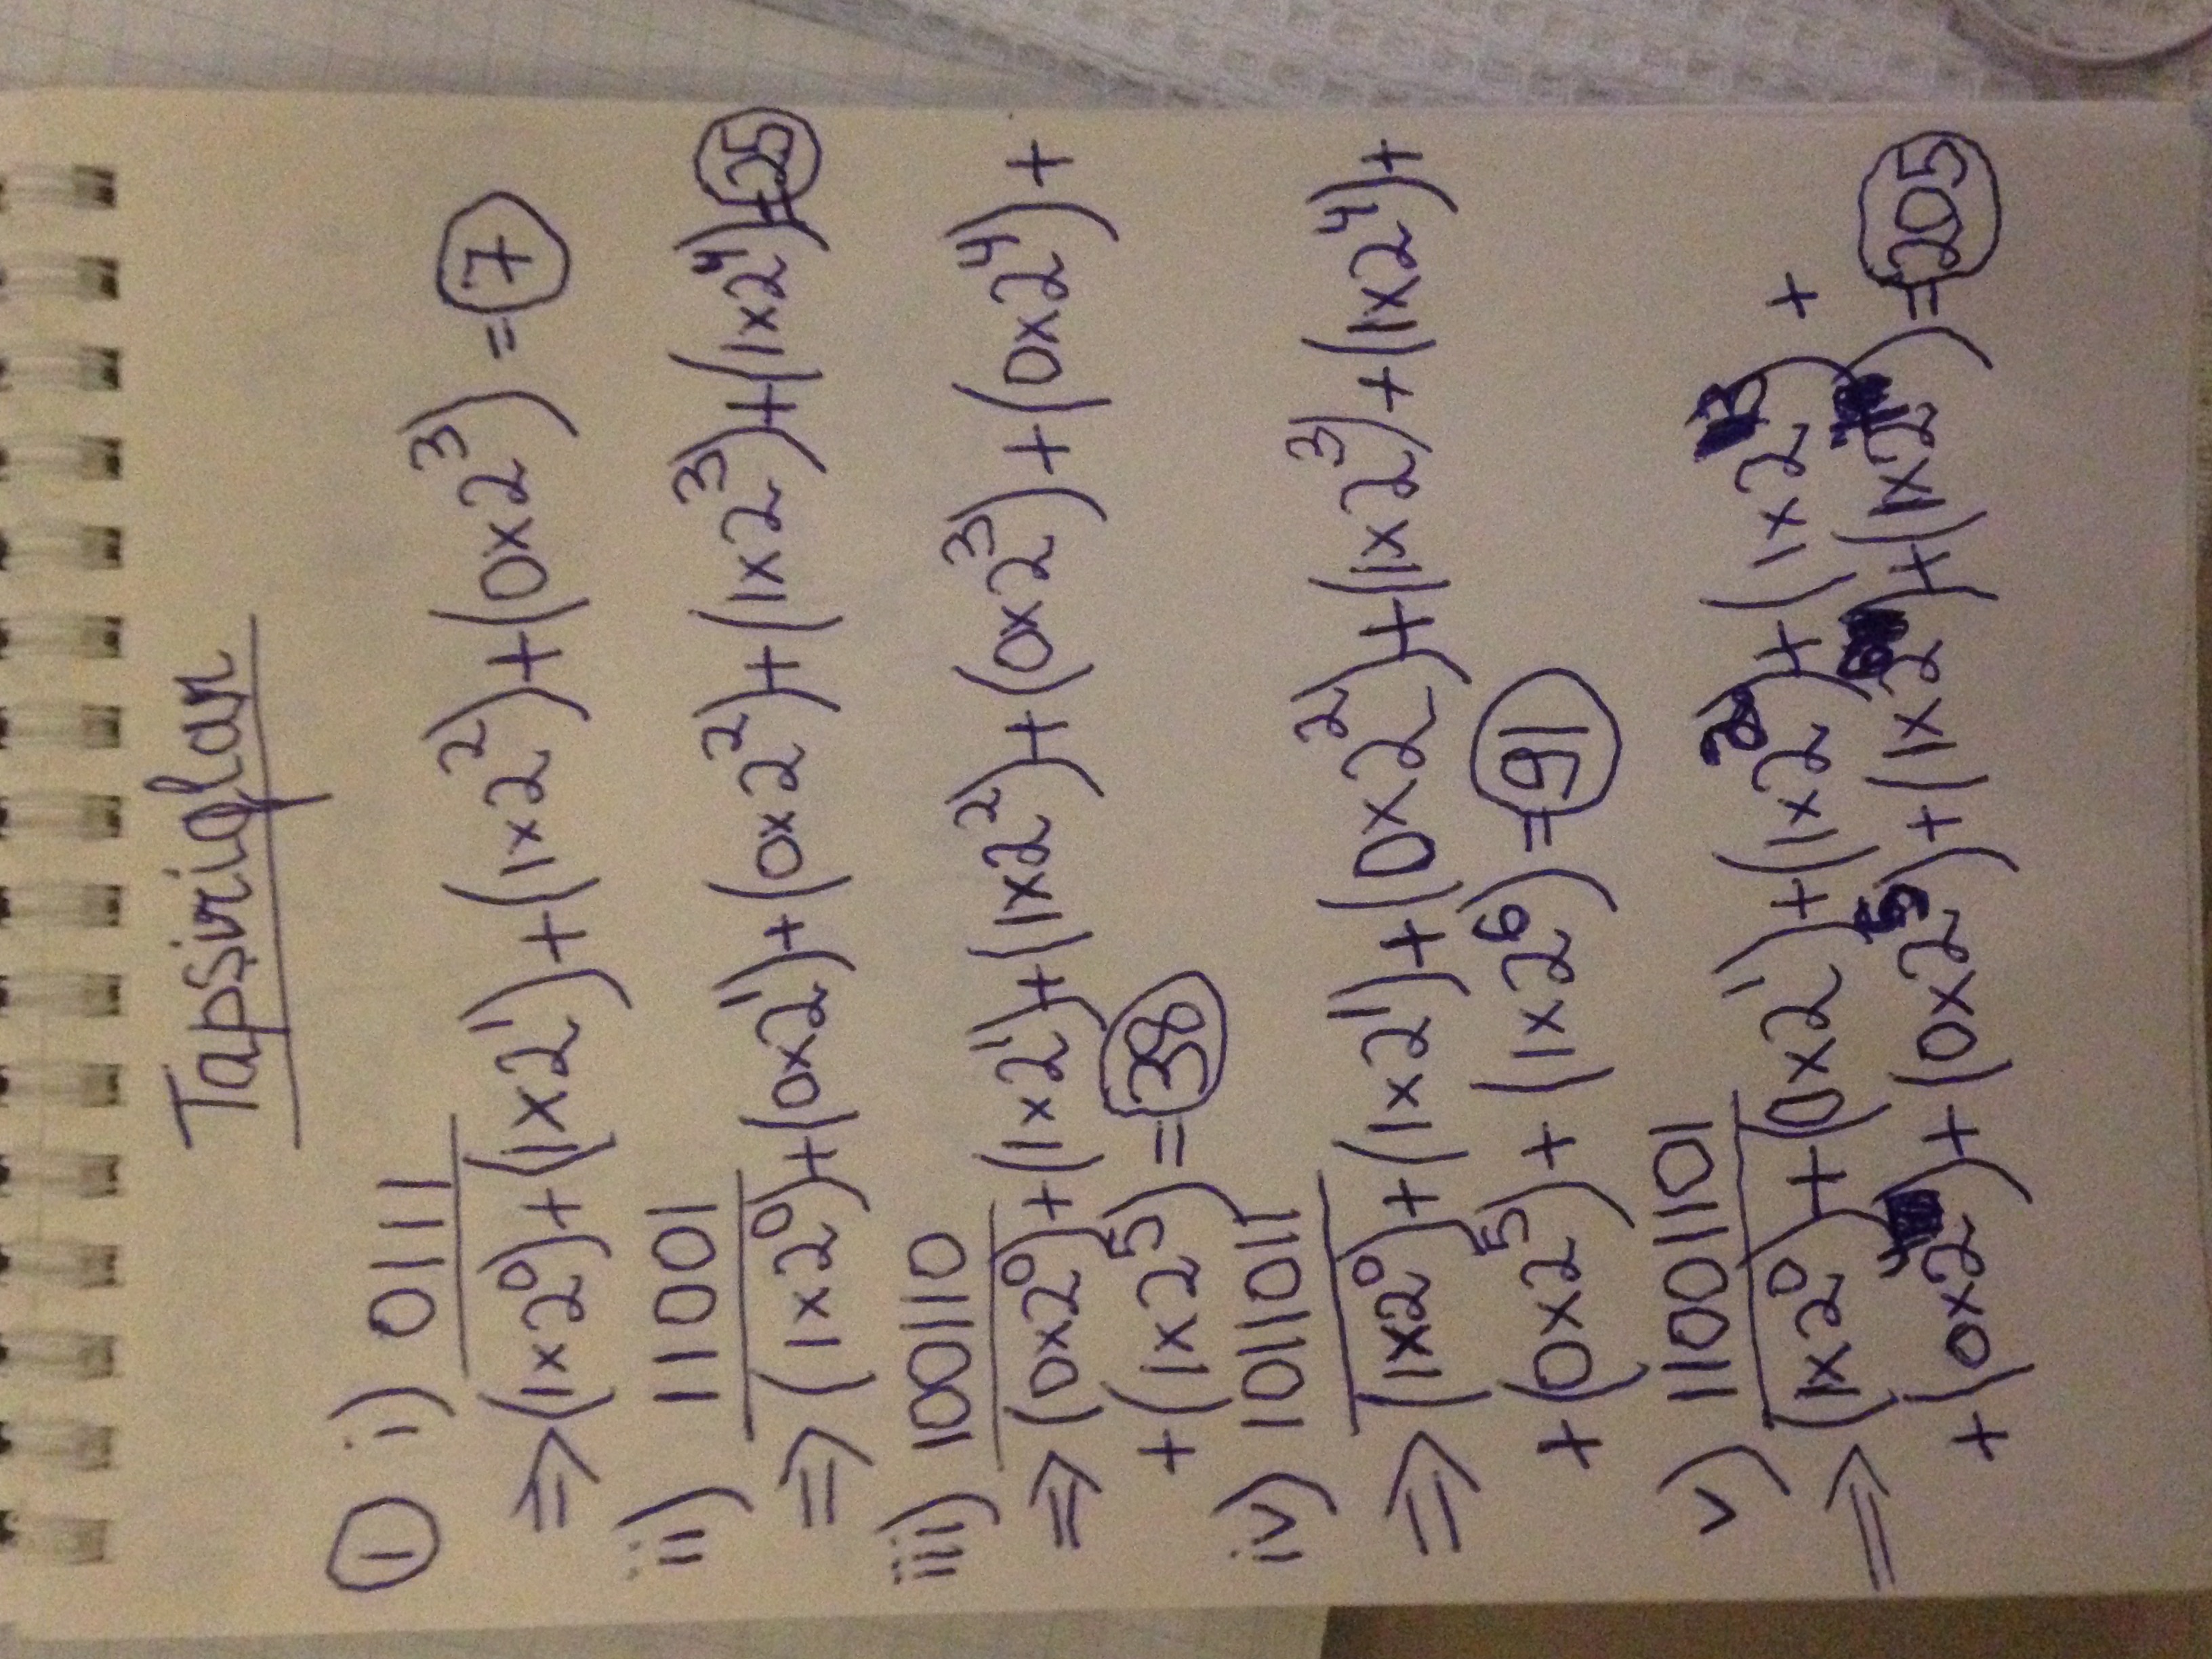 Tapşiriqlar
① i) 0111
⇒ (1×2⁰)+(1×2¹)+(1×2²)+(0×2³) = 7
ii) 11001
⇒ (1×2⁰)+(0×2¹)+(0×2²)+(1×2³)+(1×2⁴)=25
iii) 100110
⇒ (0×2⁰)+(1×2¹)+(1×2²)+(0×2³)+(0×2⁴)+
+(1×2⁵)=38
iv) 1011011
⇒ (1×2⁰)+(1×2¹)+(0×2²)+(1×2³)+(1×2⁴)+
+(0×2⁵)+(1×2⁶)=91
v) 11001101
⇒ (1×2⁰)+(0×2¹)+(1×2²)+(1×2³)+
+(0×2⁴)+(0×2⁵)+(1×2⁶)+(1×2⁷)=205